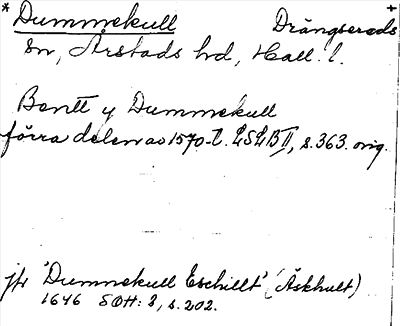 * Dummekull Drängsereds +
sn, Årstads hd, Hall. l.
Bentt y Dummekull
förra delen av 1570-t. LSLB II, s. 363. orig.
jfr 'Dummekull Eschillt' (Äskhult)
1646 SOH: 3, s. 202.